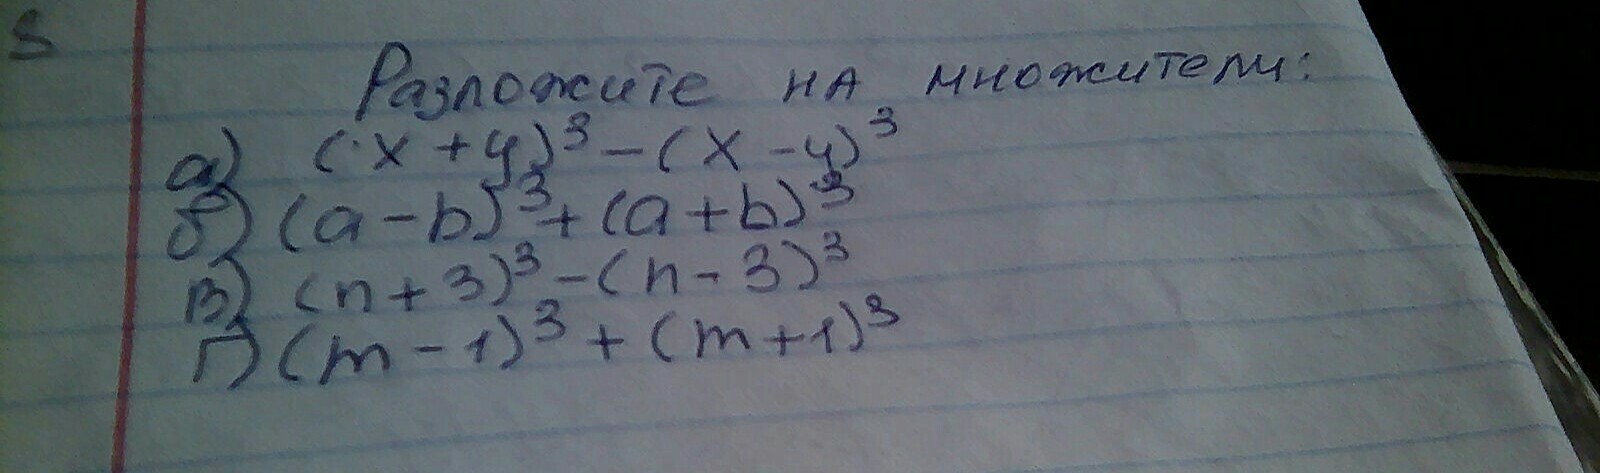 S
Разложите на множители:
а) (x + y)³ - (x - y)³
б) (a - b)³ + (a + b)³
в) (n + 3)³ - (n - 3)³
г) (m - 1)³ + (m + 1)³